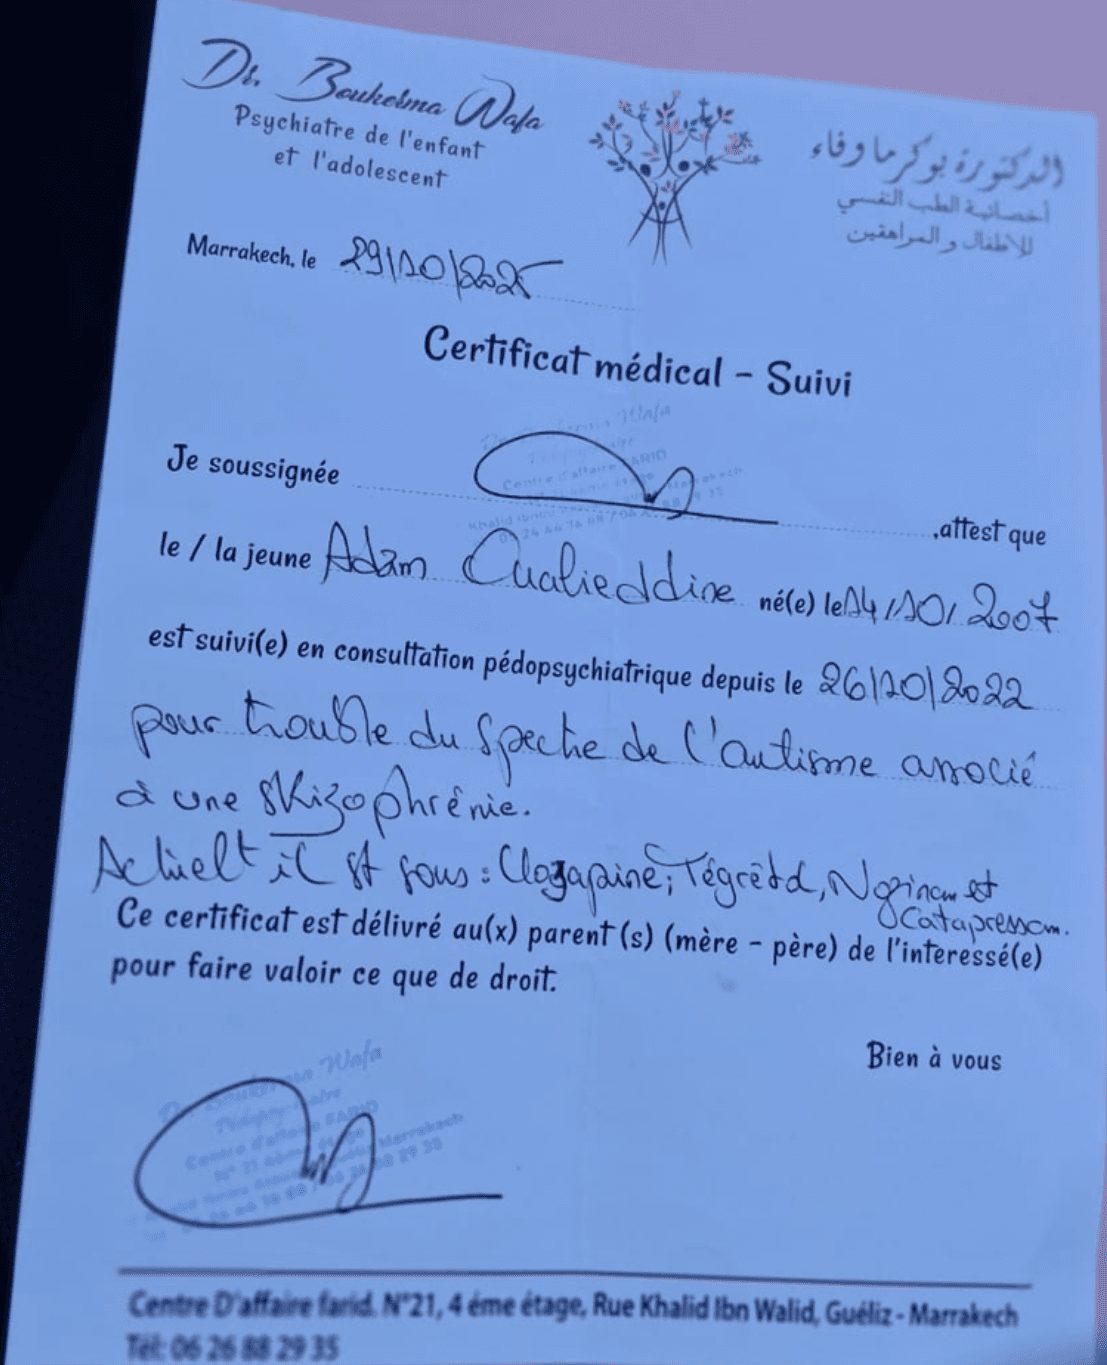 Dr. Boukerma Wafa
Psychiatre de l'enfant
et l'adolescent
الدكتورة بوكرما وفاء
أخصائية الطب النفسي
للاطفال و المراهقين
Marrakech, le 29/10/2025
Certificat médical - Suivi
Je soussignée ,attest que
le / la jeune Adam Oualieddine né(e) le 14/10/2007
est suivi(e) en consultation pédopsychiatrique depuis le 26/10/2022
pour trouble du spectre de l'autisme associé
à une skizophrénie.
il st sous : Clozapine, Tégrétol, Nozinan et
Catapressan.
Ce certificat est délivré au(x) parent(s) (mère - père) de l'interessé(e)
pour faire valoir ce que de droit.
Bien à vous
Wafa
Centre d'affaire FARID
Marrakech
Centre D'affaire farid. N°21, 4 éme étage, Rue Khalid Ibn Walid, Guéliz - Marrakech
Tél: 06 26 88 29 35